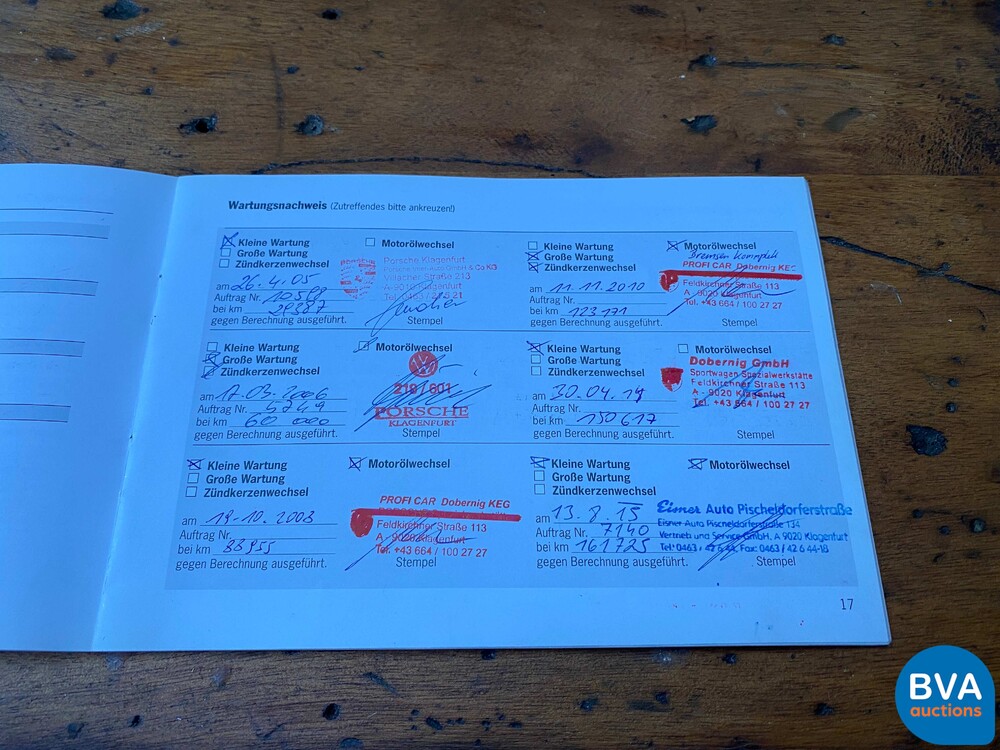 Wartungsnachweis (Zutreffendes bitte ankreuzen!)
Kleine Wartung
Große Wartung
Zündkerzenwechsel
Motorölwechsel
am 26.4.05
Auftrag Nr. 10588
bei km 29387
gegen Berechnung ausgeführt.
Porsche Klagenfurt
Villacher Straße 213
A-9010 Klagenfurt
Stempel
Kleine Wartung
Große Wartung
Zündkerzenwechsel
Motorölwechsel
Bremsen komplett
am 11.11.2010
Auftrag Nr.
bei km 123171
gegen Berechnung ausgeführt.
PROFI CAR Dobernig KEG
Feldkirchner Straße 113
A - 9020 Klagenfurt
Tel. +43 664 / 100 27 27
Stempel
Kleine Wartung
Große Wartung
Zündkerzenwechsel
Motorölwechsel
am 17.03.2006
Auftrag Nr. 5749
bei km 60 000
gegen Berechnung ausgeführt.
219 / 601
PORSCHE
KLAGENFURT
Stempel
Kleine Wartung
Große Wartung
Zündkerzenwechsel
Motorölwechsel
am 30.04.14
Auftrag Nr.
bei km 150617
gegen Berechnung ausgeführt.
Dobernig GmbH
Sportwagen Spezialwerkstätte
Feldkirchner Straße 113
A - 9020 Klagenfurt
Tel. +43 664 / 100 27 27
Stempel
Kleine Wartung
Große Wartung
Zündkerzenwechsel
Motorölwechsel
am 19.10.2008
Auftrag Nr.
bei km 88955
gegen Berechnung ausgeführt.
PROFI CAR Dobernig KEG
Feldkirchner Straße 113
A - 9020 Klagenfurt
Tel. +43 664 / 100 27 27
Stempel
Kleine Wartung
Große Wartung
Zündkerzenwechsel
Motorölwechsel
am 13.8.15
Auftrag Nr. 7140
bei km 161725
gegen Berechnung ausgeführt.
Eisner Auto Pischeldorferstraße
Eisner Auto Pischeldorferstraße 134
Vertrieb und Service GmbH, A 9020 Klagenfurt
Tel: 0463 / 42 6 44, Fax: 0463 / 42 6 44-18
Stempel
17
BVA
auctions